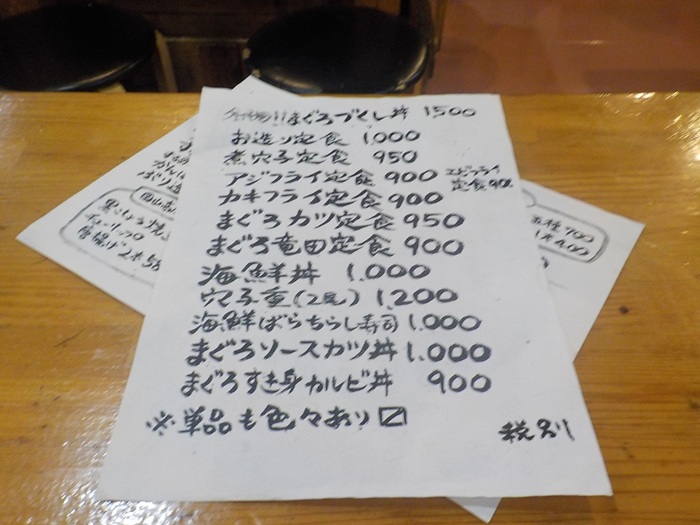 まぐろづくし丼 1500
お造り定食 1,000
煮穴子定食 950
アジフライ定食 900 エビフライ
定食 900
カキフライ定食 900
まぐろカツ定食 950
まぐろ竜田定食 900
海鮮丼 1.000
穴子重(2尾) 1,200
海鮮ばらちらし寿司 1,000
まぐろソースカツ丼 1,000
まぐろすき身カルビ丼 900
※単品も色々あり〼
税別
700